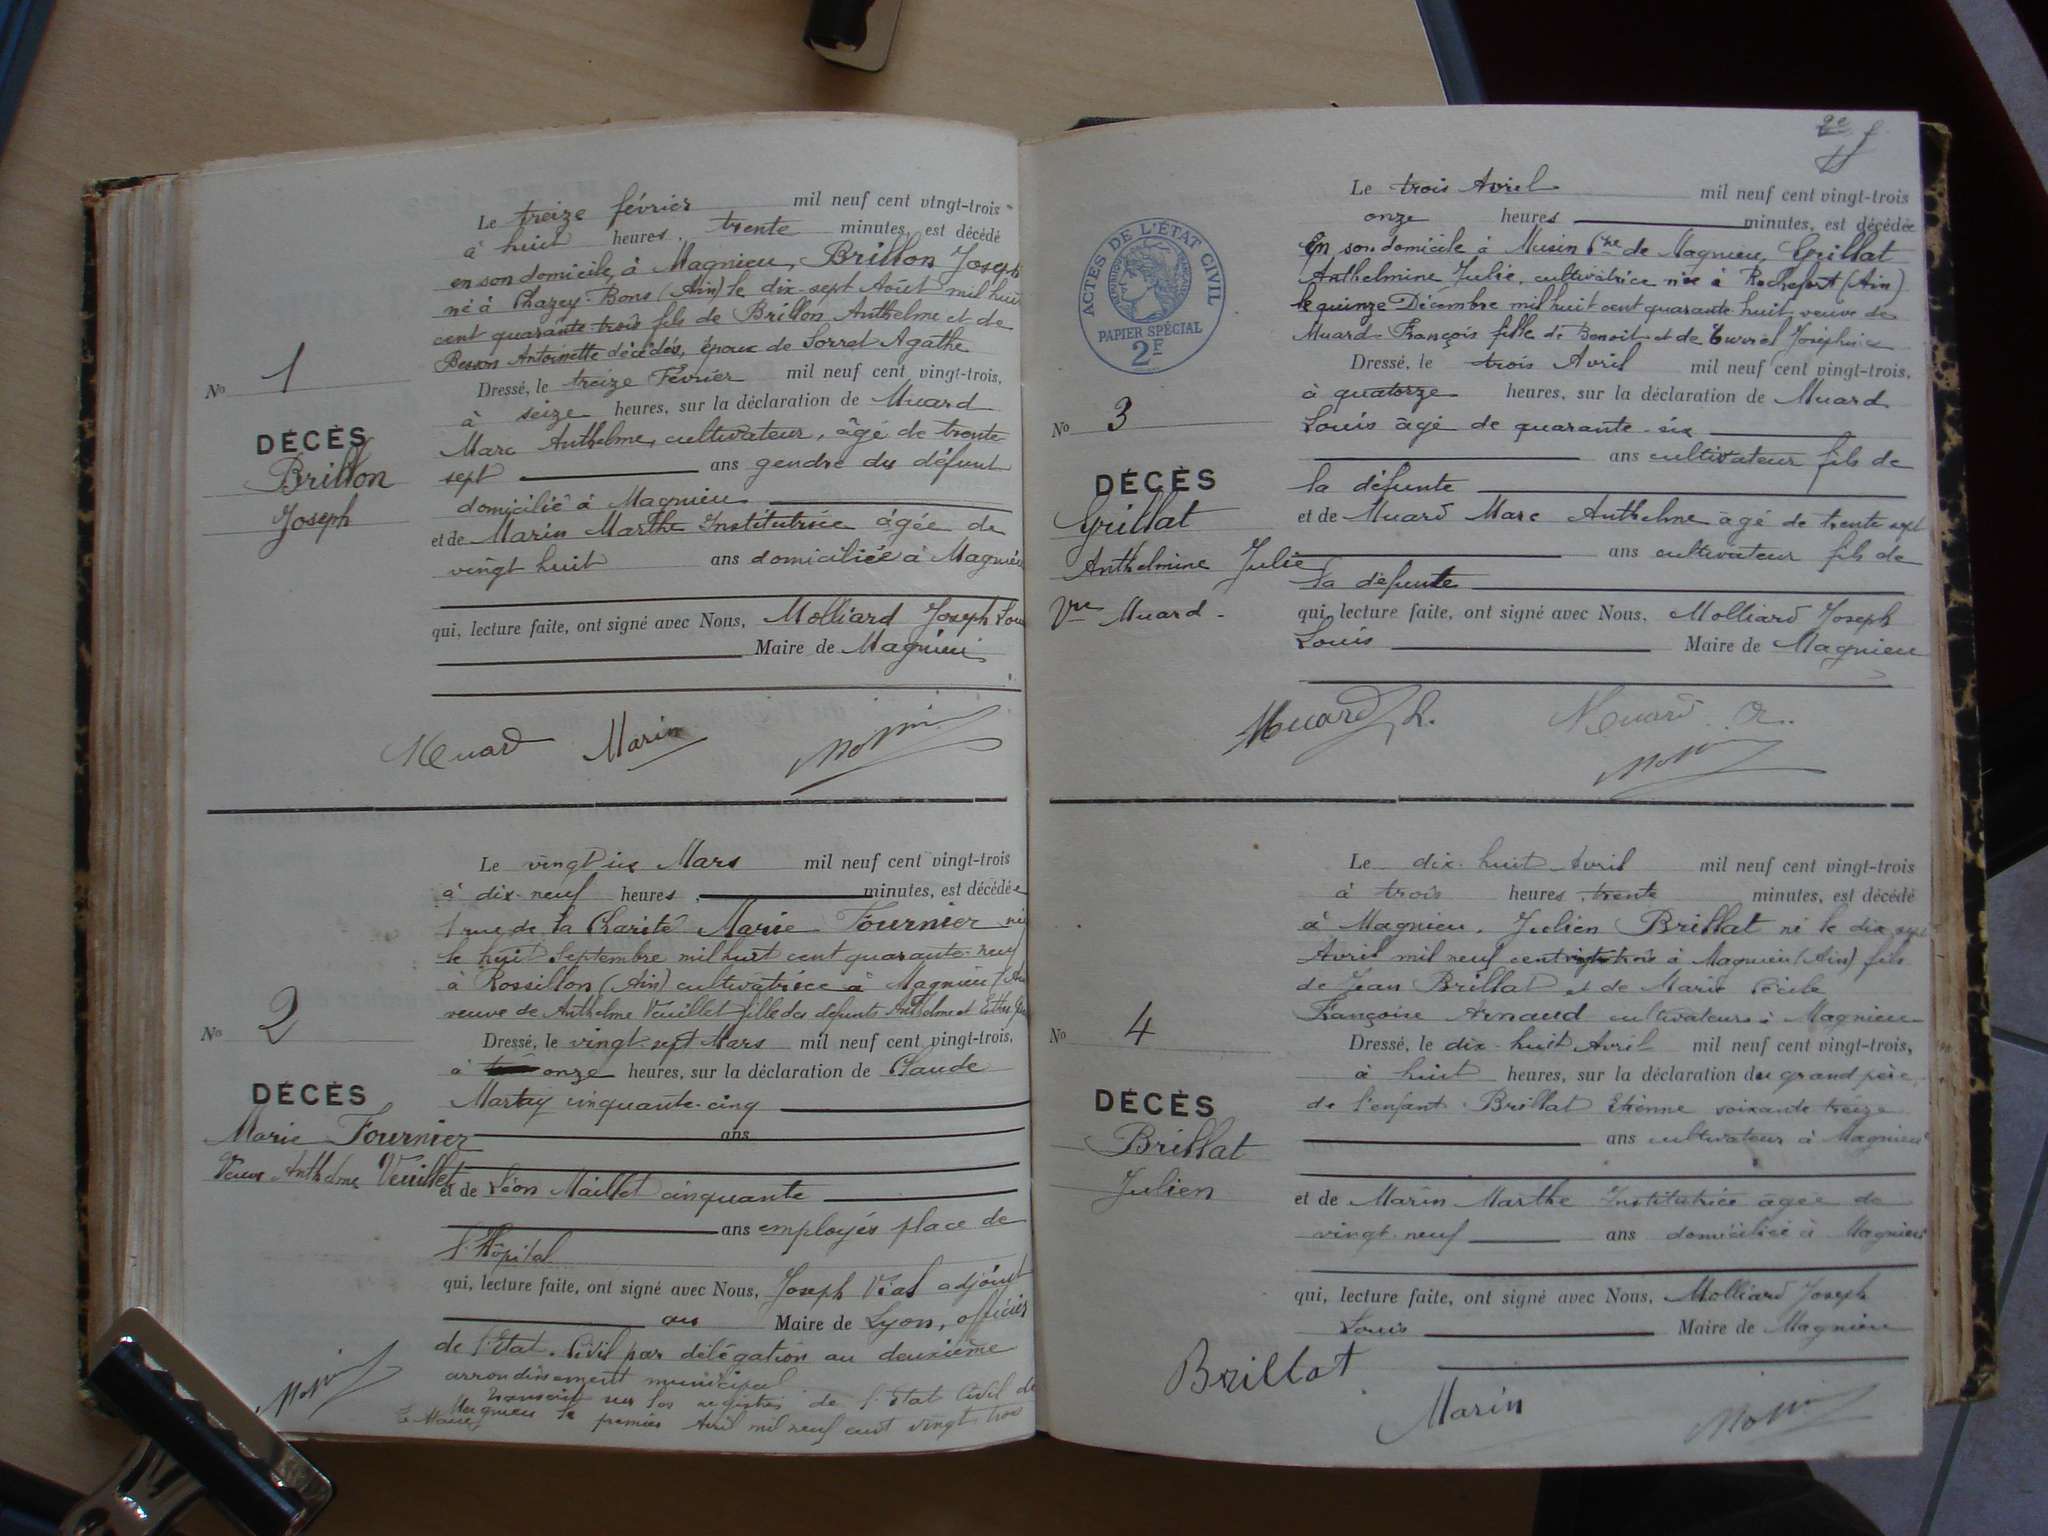 Le treize février mil neuf cent vingt-trois
à huit heures, trente minutes, est décédé
en son domicile, à Magnieu, Brillon Joseph
né à Chazey-Bons (Ain) le dix-sept Août mil huit
cent quarante-trois fils de Brillon Anthelme et de
Besson Antoinette décédés, époux de Sorret Agathe
Dressé, le treize Février mil neuf cent vingt-trois,
à seize heures, sur la déclaration de Muard
Marc Anthelme, cultivateur, âgé de trente
sept ans gendre du défunt
domicilié à Magnieu
et de Marin Marthe Institutrice âgée de
vingt huit ans domiciliée à Magnieu
qui, lecture faite, ont signé avec Nous, Molliard Joseph Louis
Maire de Magnieu
No 1
DÉCÈS
Brillon
Joseph
Muard Marin
Le vingt six Mars mil neuf cent vingt-trois
à dix-neuf heures, minutes, est décédée
1 rue de la Charité Marie Fournier née
le huit Septembre mil huit cent quarante-neuf
à Rossillon (Ain) cultivatrice à Magnieu (Ain
veuve de Anthelme Veuillet fille des défunts Anthelme et
Dressé, le vingt sept Mars mil neuf cent vingt-trois,
à onze heures, sur la déclaration de Claude
Martay cinquante-cinq
ans
et de Léon Maillet cinquante
ans employés place de
l'Hôpital
qui, lecture faite, ont signé avec Nous, Joseph Vial adjoint
au Maire de Lyon, officier
de l'Etat-Civil par délégation au deuxième
arrondissement municipal
Transcrit sur les registres de l'Etat Civil de
Magnieu le premier Avril mil neuf cent vingt trois
Le Maire,
No 2
DÉCÈS
Marie Fournier
Veuve Anthelme Veuillet
2e f
Le trois Avril mil neuf cent vingt-trois
onze heures minutes, est décédée
En son domicile à Musin Cne de Magnieu, Grillat
Anthelmine Julie, cultivatrice née à Rochefort (Ain)
le quinze Décembre mil huit cent quarante huit, veuve de
Muard François fille de Benoit et de Curvel Joséphine
Dressé, le trois Avril mil neuf cent vingt-trois,
à quatorze heures, sur la déclaration de Muard
Louis âgé de quarante-six
ans cultivateur fils de
la défunte
et de Muard Marc Anthelme âgé de trente sept
ans cultivateur fils de
la défunte
qui, lecture faite, ont signé avec Nous, Molliard Joseph
Louis Maire de Magnieu
ACTES DE L'ÉTAT CIVIL
PAPIER SPÉCIAL
2F
No 3
DÉCÈS
Grillat
Anthelmine Julie
Vve Muard
Muard L. Muard
Le dix-huit Avril mil neuf cent vingt-trois
à trois heures, trente minutes, est décédé
à Magnieu, Julien Brillat né le dix sept
Avril mil neuf cent vingt trois à Magnieu (Ain) fils
de Jean Brillat et de Marie Cécile
Françoise Arnaud cultivateurs à Magnieu
Dressé, le dix-huit Avril mil neuf cent vingt-trois,
à huit heures, sur la déclaration du grand père
de l'enfant Brillat Etienne soixante treize
ans cultivateur à Magnieu
et de Marin Marthe Institutrice âgée de
vingt-neuf ans domiciliée à Magnieu
qui, lecture faite, ont signé avec Nous, Molliard Joseph
Louis Maire de Magnieu
No 4
DÉCÈS
Brillat
Julien
Brillat
Marin